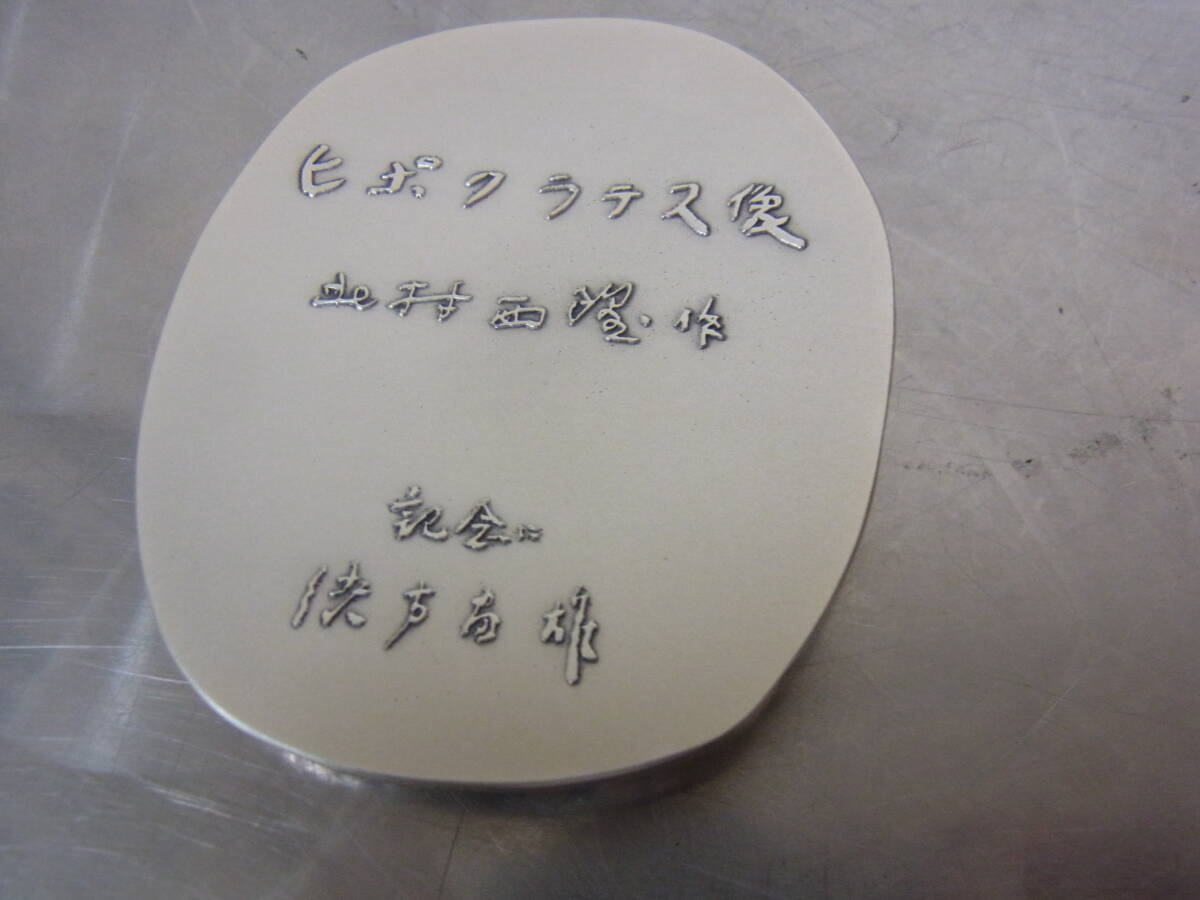 ヒポクラテス像
北村西望作
記念に
方雄